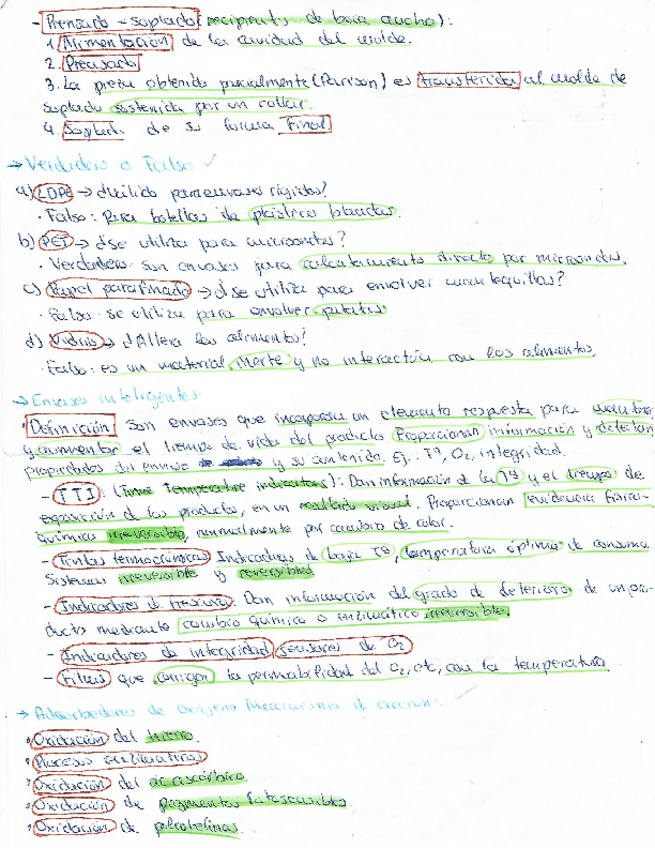 - Prensado - soplado (recipientes de boca ancha):
1. Alimentación de la cavidad del molde.
2. Prensado
3. La pieza obtenida parcialmente (Parrison) es transferida al molde de
soplado sostenida por un collar.
4. Soplado de su forma final
→ Verdadero o Falso ✓
a) LDPE → ¿utilidad para envases rígidos?
· Falso: Para botellas de plásticos blandos.
b) PET → ¿se utiliza para microondas?
· Verdadero: son envases para calentamiento directo por microondas.
c) Papel parafinado → ¿se utiliza para envolver mantequillas?
· Falso: se utiliza para envolver patatas
d) Vidrio → ¿Altera los alimentos?
· Falso: es un material inerte y no interactúa con los alimentos.
→ Envases inteligentes.
· Definición Son envases que incorporan un elemento respuesta para
y aumentar el tiempo de vida del producto Proporcionan información y detectan
propiedades del envase y su contenido. Ej.: Tª, O2, integridad.
- TTI: (Time Temperature indicators): Dan información de la Tª y el tiempo de
exposición de los productos, en un resultado visual. Proporcionan evidencia físico-
química irreversible, normalmente por cambio de color.
- Tintas termocrómicas Indicadoras de baja Tª, temperatura óptima de consumo
Sistemas irreversible y reversibles
- Indicadores de frescura. Dan información del grado de deterioro de un pro-
ducto mediante cambio químico o enzimático irreversible.
- Indicadores de integridad sensores de O2
- Films que corrigen la permabilidad del O2, etc, con la temperatura
→ Adsorbedores de oxígeno Mecanismo de acción:
· Oxidación del hierro.
· Proceso enzimático
· Oxidación del ac. ascórbico
· Oxidación de pigmentos fotosensibles
· Oxidación de